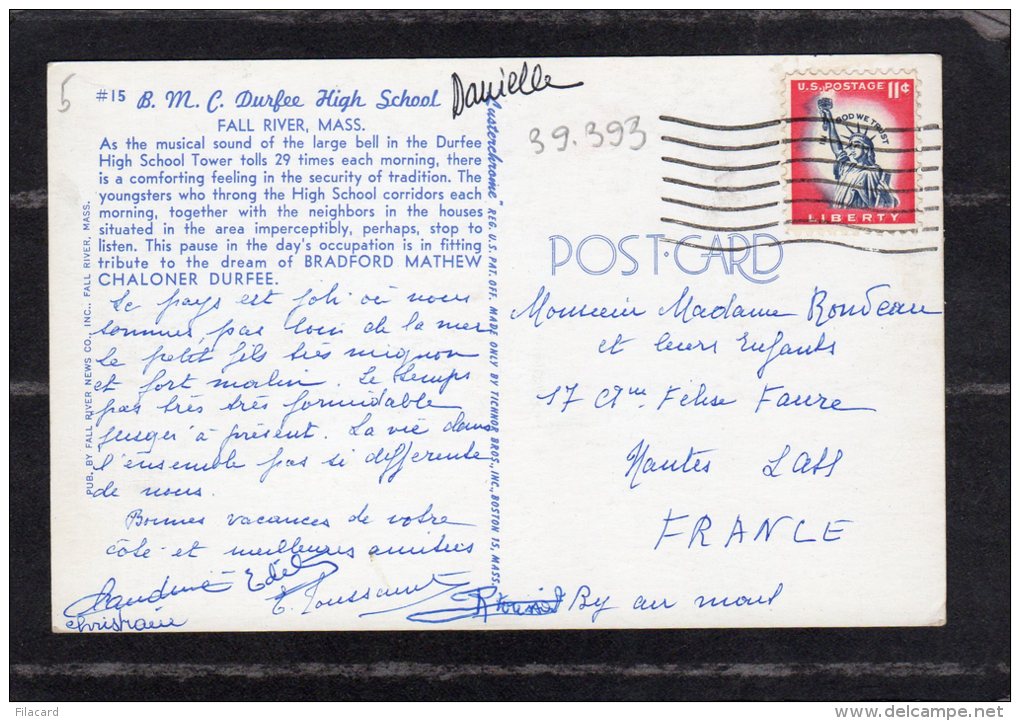 5
#15 B. M. C. Durfee High School
FALL RIVER, MASS.
As the musical sound of the large bell in the Durfee
High School Tower tolls 29 times each morning, there
is a comforting feeling in the security of tradition. The
youngsters who throng the High School corridors each
morning, together with the neighbors in the houses
situated in the area imperceptibly, perhaps, stop to
listen. This pause in the day's occupation is in fitting
tribute to the dream of BRADFORD MATHEW
CHALONER DURFEE.
Danielle
39.393
U.S. POSTAGE 11¢
IN GOD WE TRUST
LIBERTY
PUB. BY FALL RIVER NEWS CO., INC., FALL RIVER, MASS.
"Lusterchrome" REG. U.S. PAT. OFF. MADE ONLY BY TICHNOR BROS., INC., BOSTON 15, MASS.
POST-CARD
Le pays est joli où nous
sommes, pas loin de la mer
Le petit fils très mignon
et fort malin. Le temps
pas très très formidable
jusqu'à présent. La vie dans
l'ensemble pas si differente
de nous.
Bonnes vacances de votre
côté et meilleures amitiés
E. Toussaint
Christiane
Monsieur Madame Rondeau
et leurs Enfants
17 Felise Faure
Nantes L Atl
FRANCE
By air mail
Filacard
www.delcampe.net